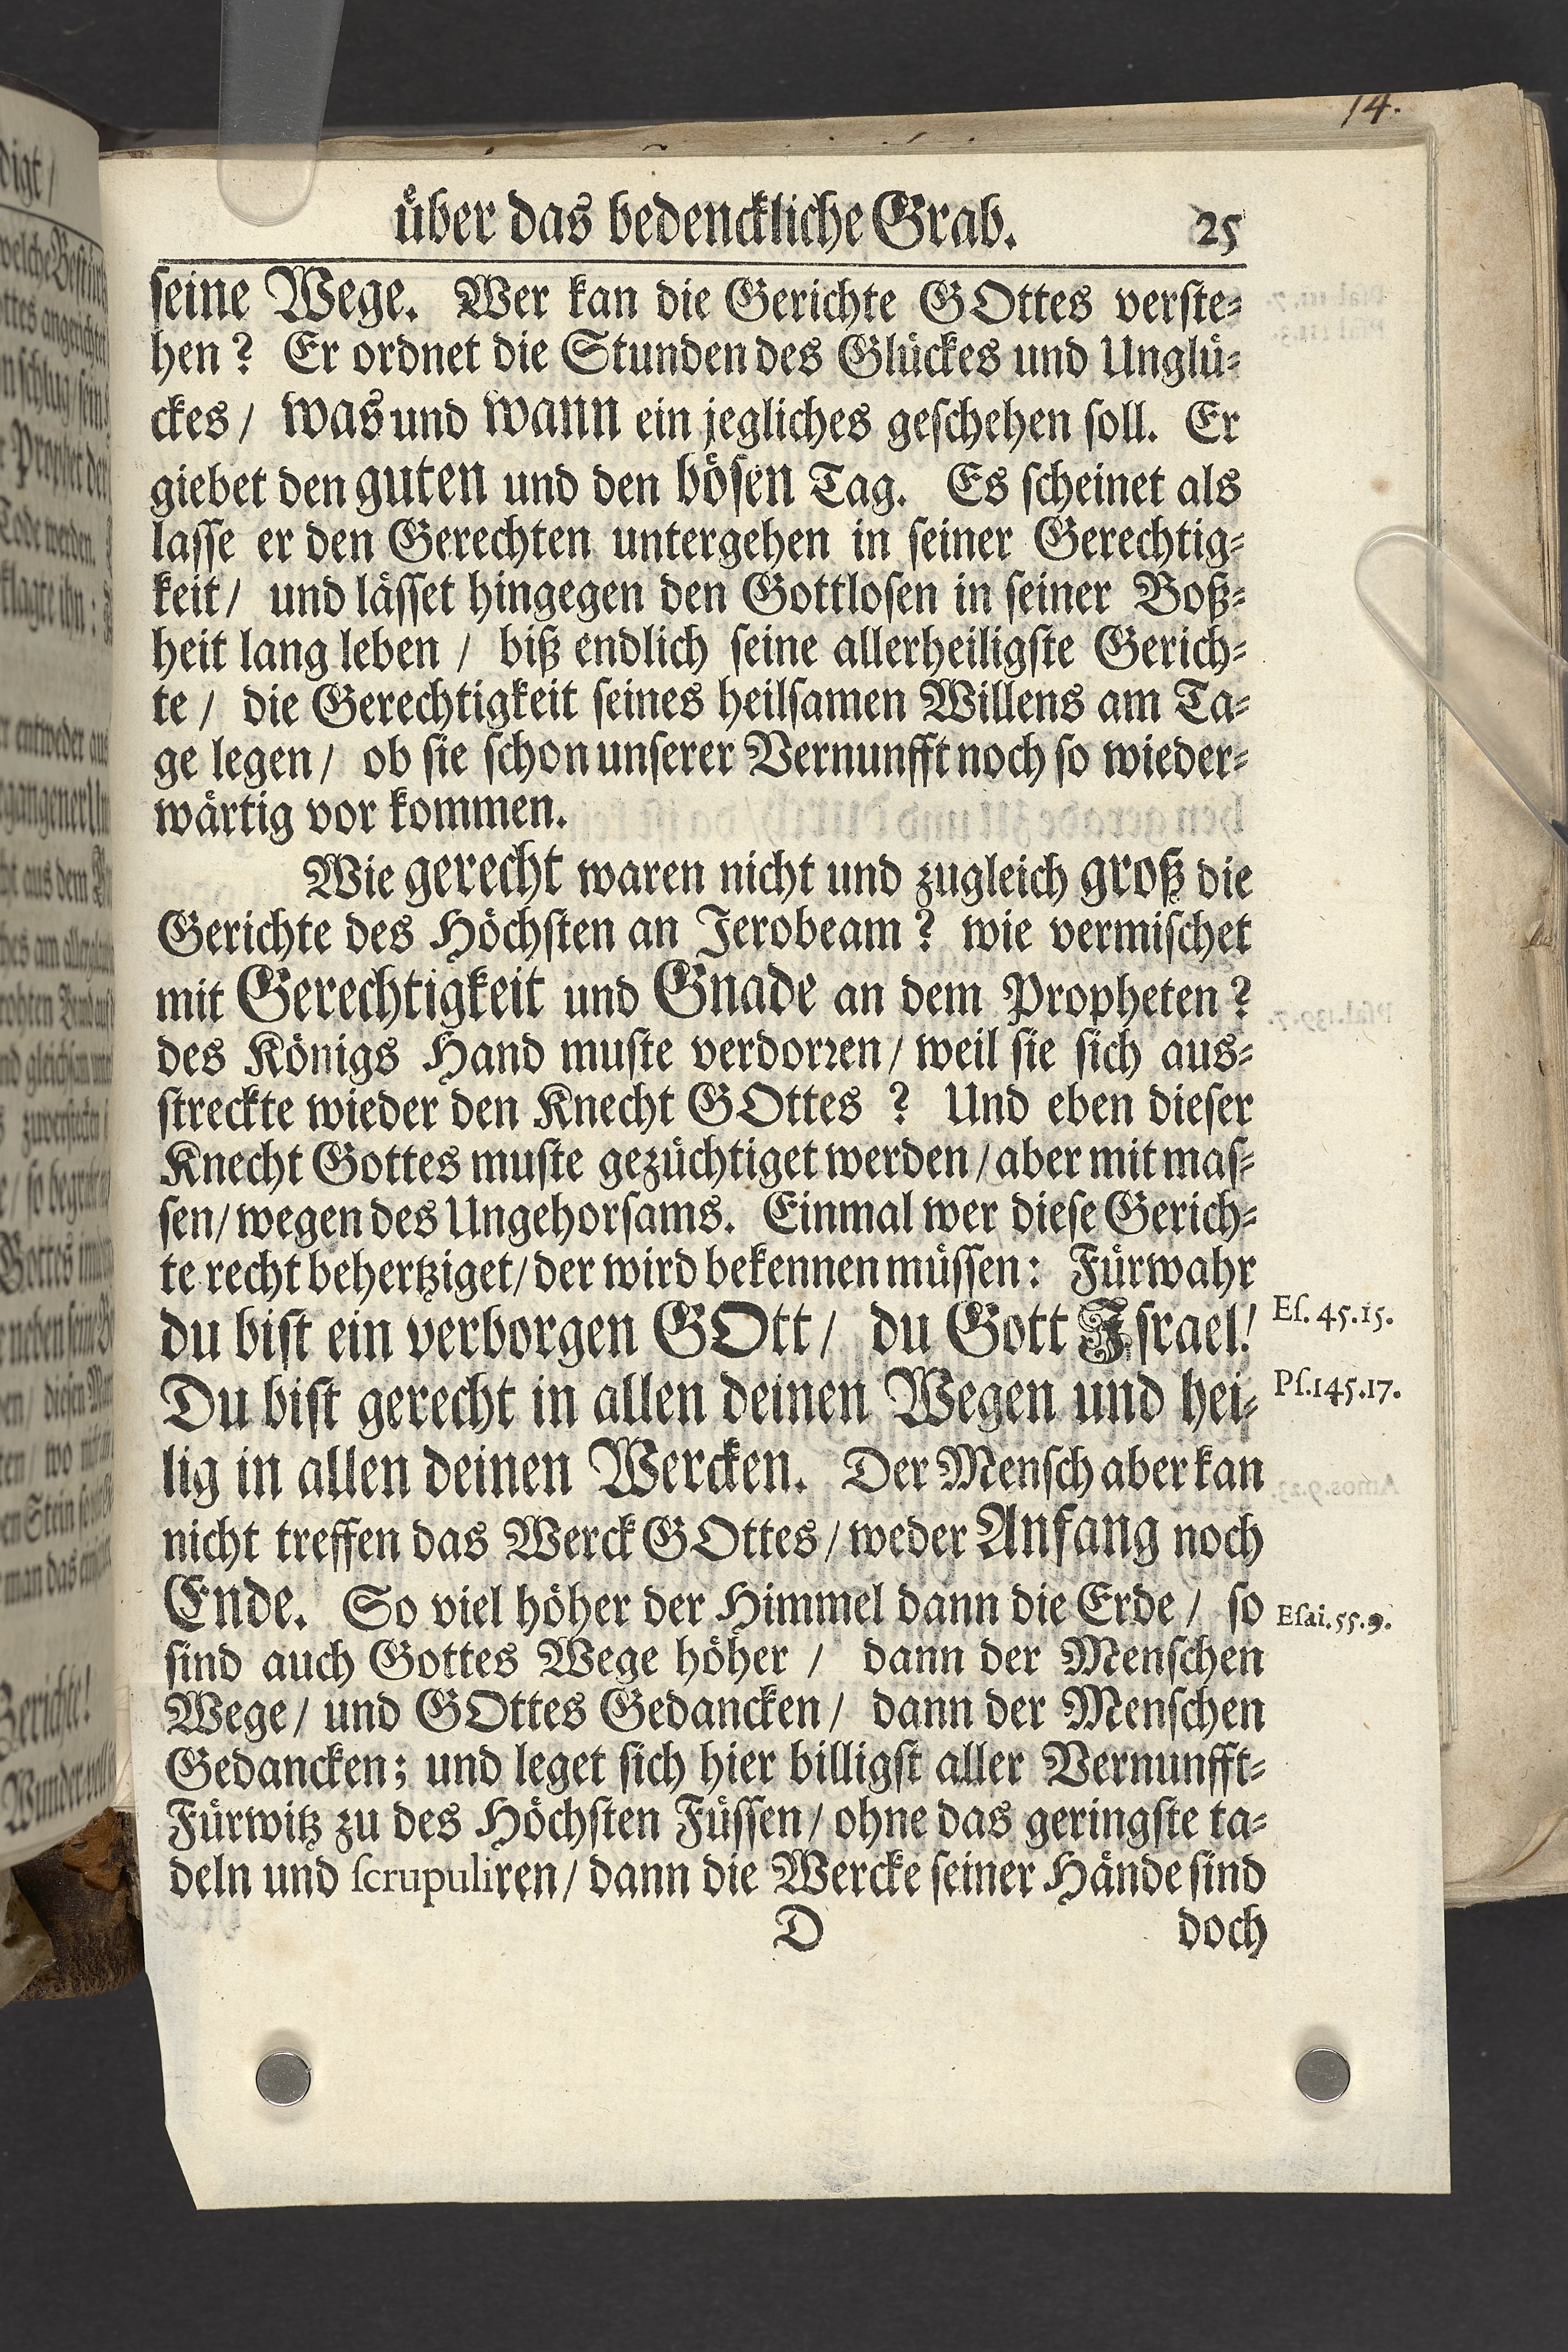 14.
uͤber das bedenckliche Grab. 25
ſeine Wege. Wer kan die Gerichte GOttes verſte⸗
hen? Er ordnet die Stunden des Gluͤckes und Ungluͤ⸗
ckes / was und wann ein jegliches geſchehen ſoll. Er
giebet den guten und den boͤſen Tag. Es ſcheinet als
laſſe er den Gerechten untergehen in ſeiner Gerechtig⸗
keit / und laͤſſet hingegen den Gottloſen in ſeiner Boß⸗
heit lang leben / biß endlich ſeine allerheiligſte Gerich⸗
te / die Gerechtigkeit ſeines heilſamen Willens am Ta⸗
ge legen / ob ſie ſchon unſerer Vernunfft noch ſo wieder⸗
waͤrtig vor kommen.
Wie gerecht waren nicht und zugleich groß die
Gerichte des Hoͤchſten an Jerobeam? wie vermiſchet
mit Gerechtigkeit und Gnade an dem Propheten?
des Koͤnigs Hand muſte verdorꝛen / weil ſie ſich aus⸗
ſtreckte wieder den Knecht GOttes ? Und eben dieſer
Knecht Gottes muſte gezuͤchtiget werden / aber mit maſ⸗
ſen / wegen des Ungehorſams. Einmal wer dieſe Gerich⸗
te recht behertziget / der wird bekennen muͤſſen: Fuͤrwahr
du biſt ein verborgen GOtt / du Gott Iſrael! Eſ. 45.15.
Du biſt gerecht in allen deinen Wegen und hei⸗ Pſ.145.17.
lig in allen deinen Wercken. Der Menſch aber kan
nicht treffen das Werck GOttes / weder Anfang noch
Ende. So viel hoͤher der Himmel dann die Erde / ſo Eſai.55.9.
ſind auch Gottes Wege hoͤher / dann der Menſchen
Wege / und GOttes Gedancken / dann der Menſchen
Gedancken; und leget ſich hier billigſt aller Vernunfft⸗
Fuͤrwitz zu des Hoͤchſten Fuͤſſen / ohne das geringſte ta⸗
deln und ſcrupuliren / dann die Wercke ſeiner Haͤnde ſind
D doch